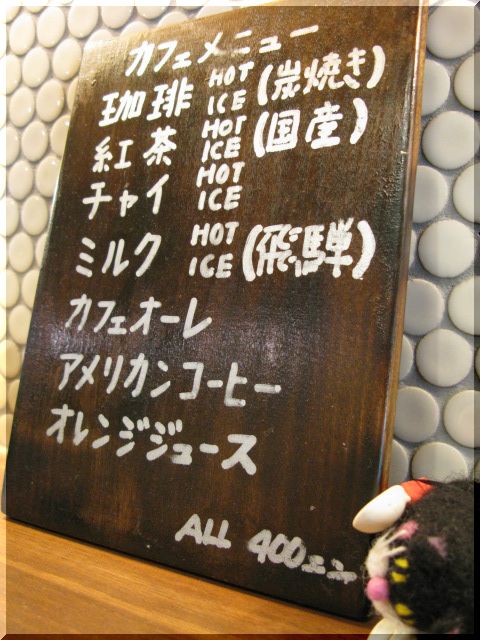 カフェメニュー
珈琲 HOT ICE (炭焼き)
紅茶 HOT ICE (国産)
チャイ HOT ICE
ミルク HOT ICE (飛騨)
カフェオーレ
アメリカンコーヒー
オレンジジュース
ALL 400エン